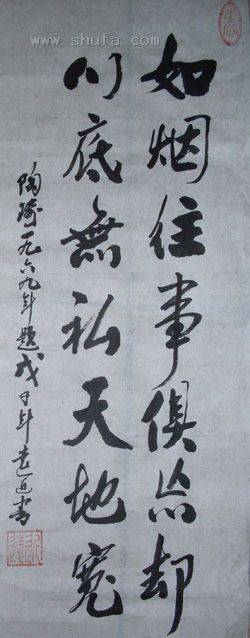 www.shufa.com
如烟往事俱忘却
心底無私天地寬
陶铸一九六九年题戊子年書